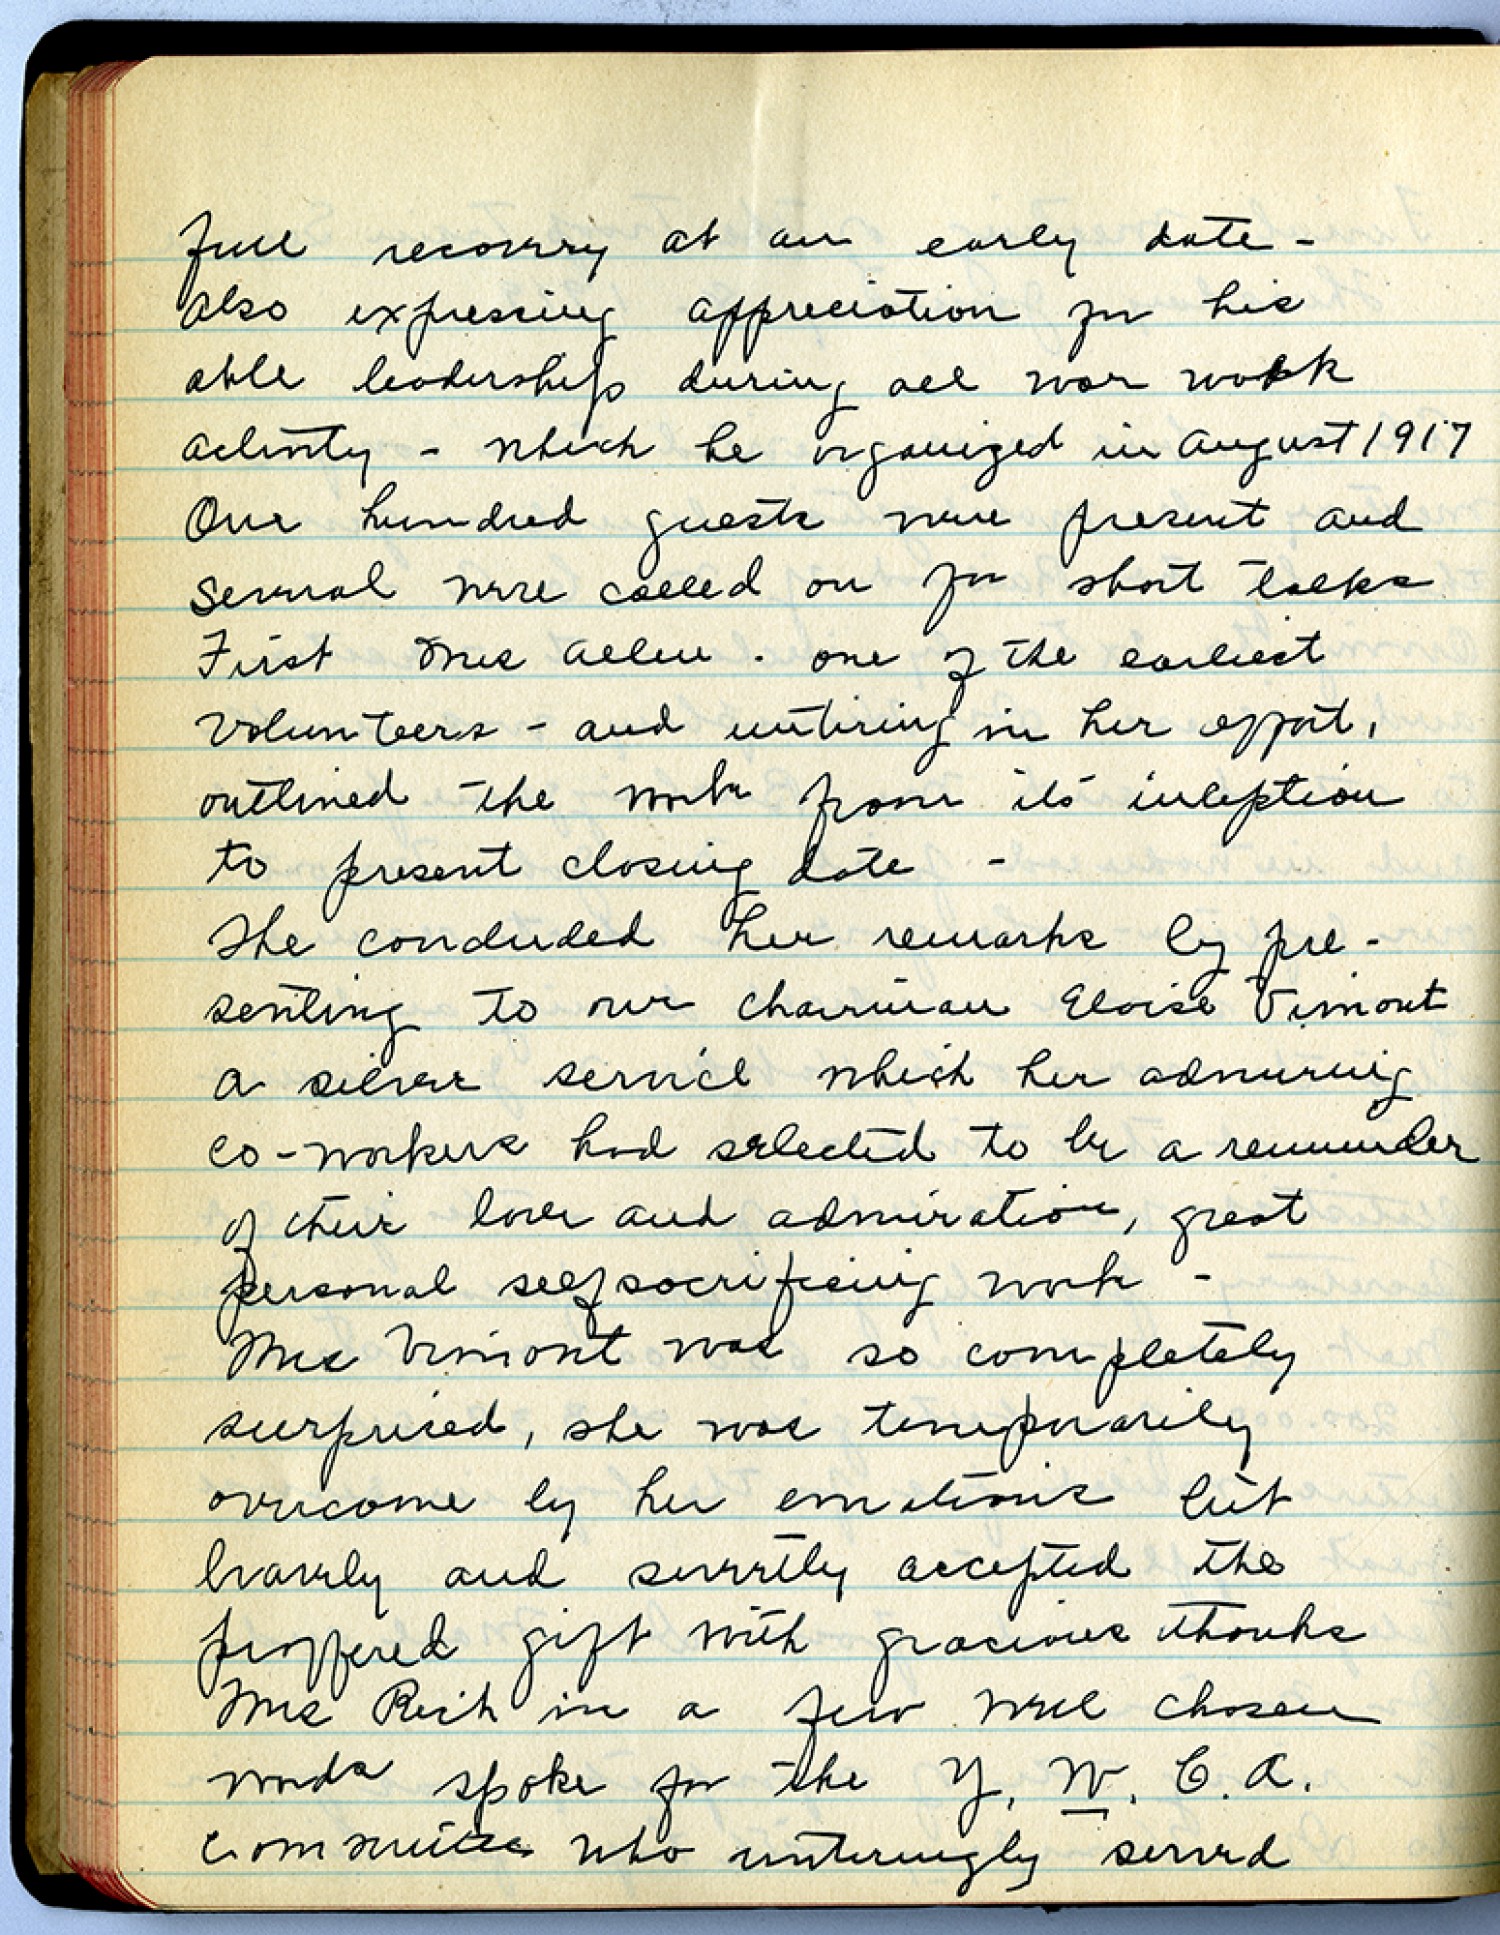 full recovery at an early date -
also expressing appreciation for his
able leadership during all war work
activity - which he organized in August 1917
One hundred guests were present and
several were called on for short talks
First Mrs Allen. one of the earliest
volunteers - and untiring in her effort,
outlined the work from its inception
to present closing date -
She concluded her remarks by pre-
senting to our chairman Eloise Vimont
a silver service which her admiring
co-workers had selected to be a reminder
of their love and admiration, great
personal selfsacrificing work -
Mrs Vimont was so completely
surprised, she was temporarily
overcome by her emotions but
bravely and sweetly accepted the
proffered gift with gracious thanks
Mrs Rich in a few well chosen
words spoke for the Y. W. C. A.
Committee who unteringly served